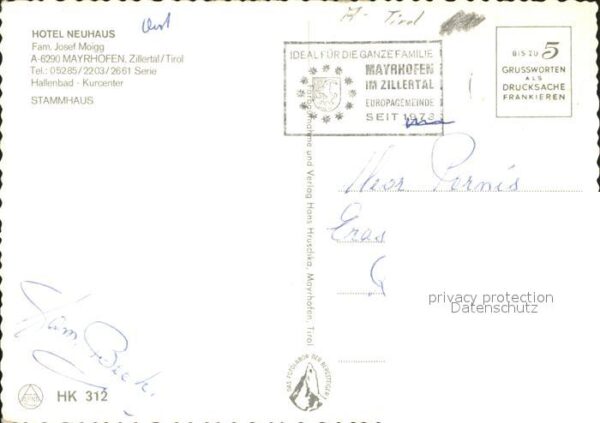 HOTEL NEUHAUS
Fam. Josef Moigg
A-6290 MAYRHOFEN, Zillertal/Tirol
Tel.: 05285/2203/2661 Serie
Hallenbad - Kurcenter
STAMMHAUS
Tirol
IDEAL FÜR DIE GANZE FAMILIE
MAYRHOFEN
IM ZILLERTAL
EUROPAGEMEINDE
SEIT 1973
BIS ZU 5
GRUSSWORTEN
ALS
DRUCKSACHE
FRANKIEREN
Aufnahme und Verlag Hans Hruschka, Mayrhofen, Tirol
privacy protection
Datenschutz
Fam. Beck
DAS FOTO VON DER BERGSTEIGER
HK 312